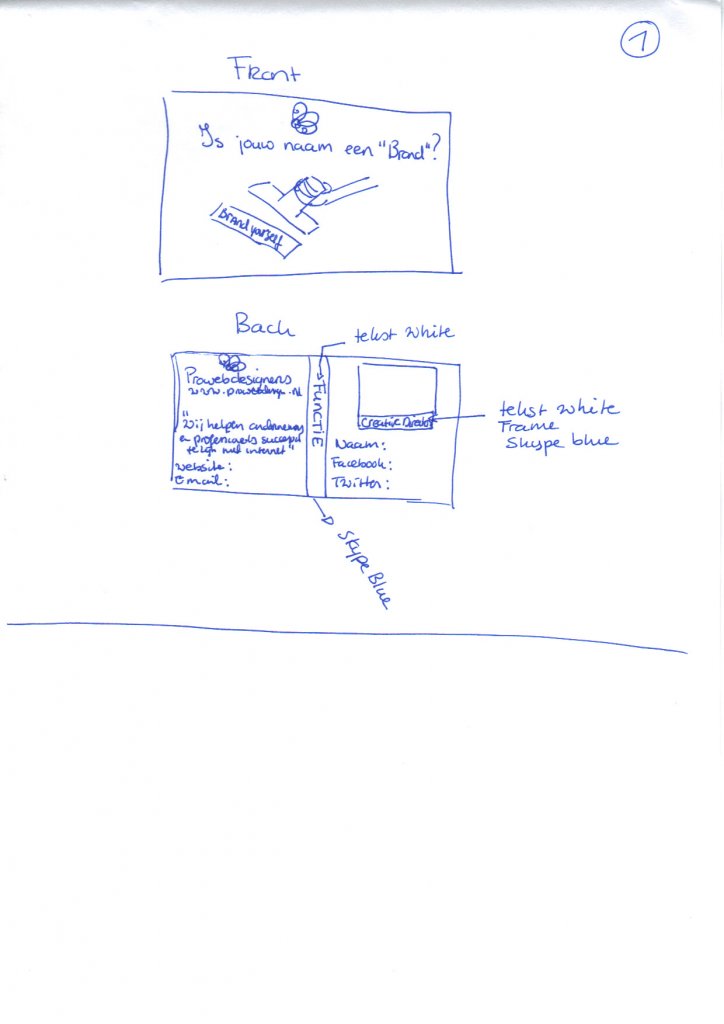 1
Front
Is jouw naam een "Brand"?
Brand yourself
Back
tekst white
Prowebdesigners
www.prowebdesign.nl
"
Wij helpen ondernemers
en professionals succesvol
te zijn met internet"
Website:
Email:
FUNCTIE
Creative Director
Naam:
Facebook:
Twitter:
tekst white
Frame
Skype blue
Skype Blue